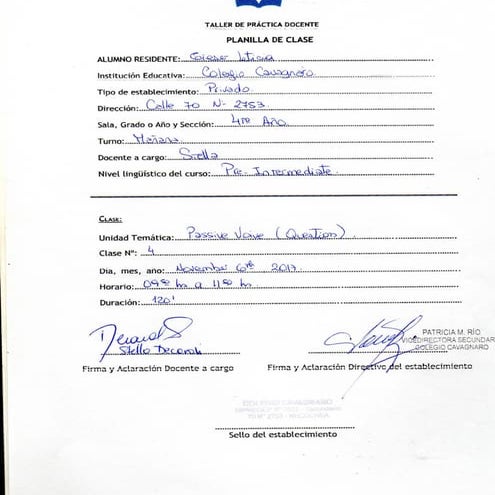 TALLER DE PRÁCTICA DOCENTE
PLANILLA DE CLASE
ALUMNO RESIDENTE: Leticia
Institución Educativa: Colegio Cavagnaro
Tipo de establecimiento: Privado
Dirección: Calle 70 N° 2753
Sala, Grado o Año y Sección: 4to Año
Turno: Mañana
Docente a cargo: Stella
Nivel lingüístico del curso: Pre-Intermediate
CLASE:
Unidad Temática: Passive Voive (Question)
Clase Nº: 4
Dia, mes, año: November 6th 2017
Horario: 09:00 hs a 11:00 hs
Duración: 120'
Stella
PATRICIA M. RÍO
VICEDIRECTORA SECUNDAR
COLEGIO CAVAGNARO
Firma y Aclaración Docente a cargo
Firma y Aclaración Directivo del establecimiento
COLEGIO CAVAGNARO
Sello del establecimiento